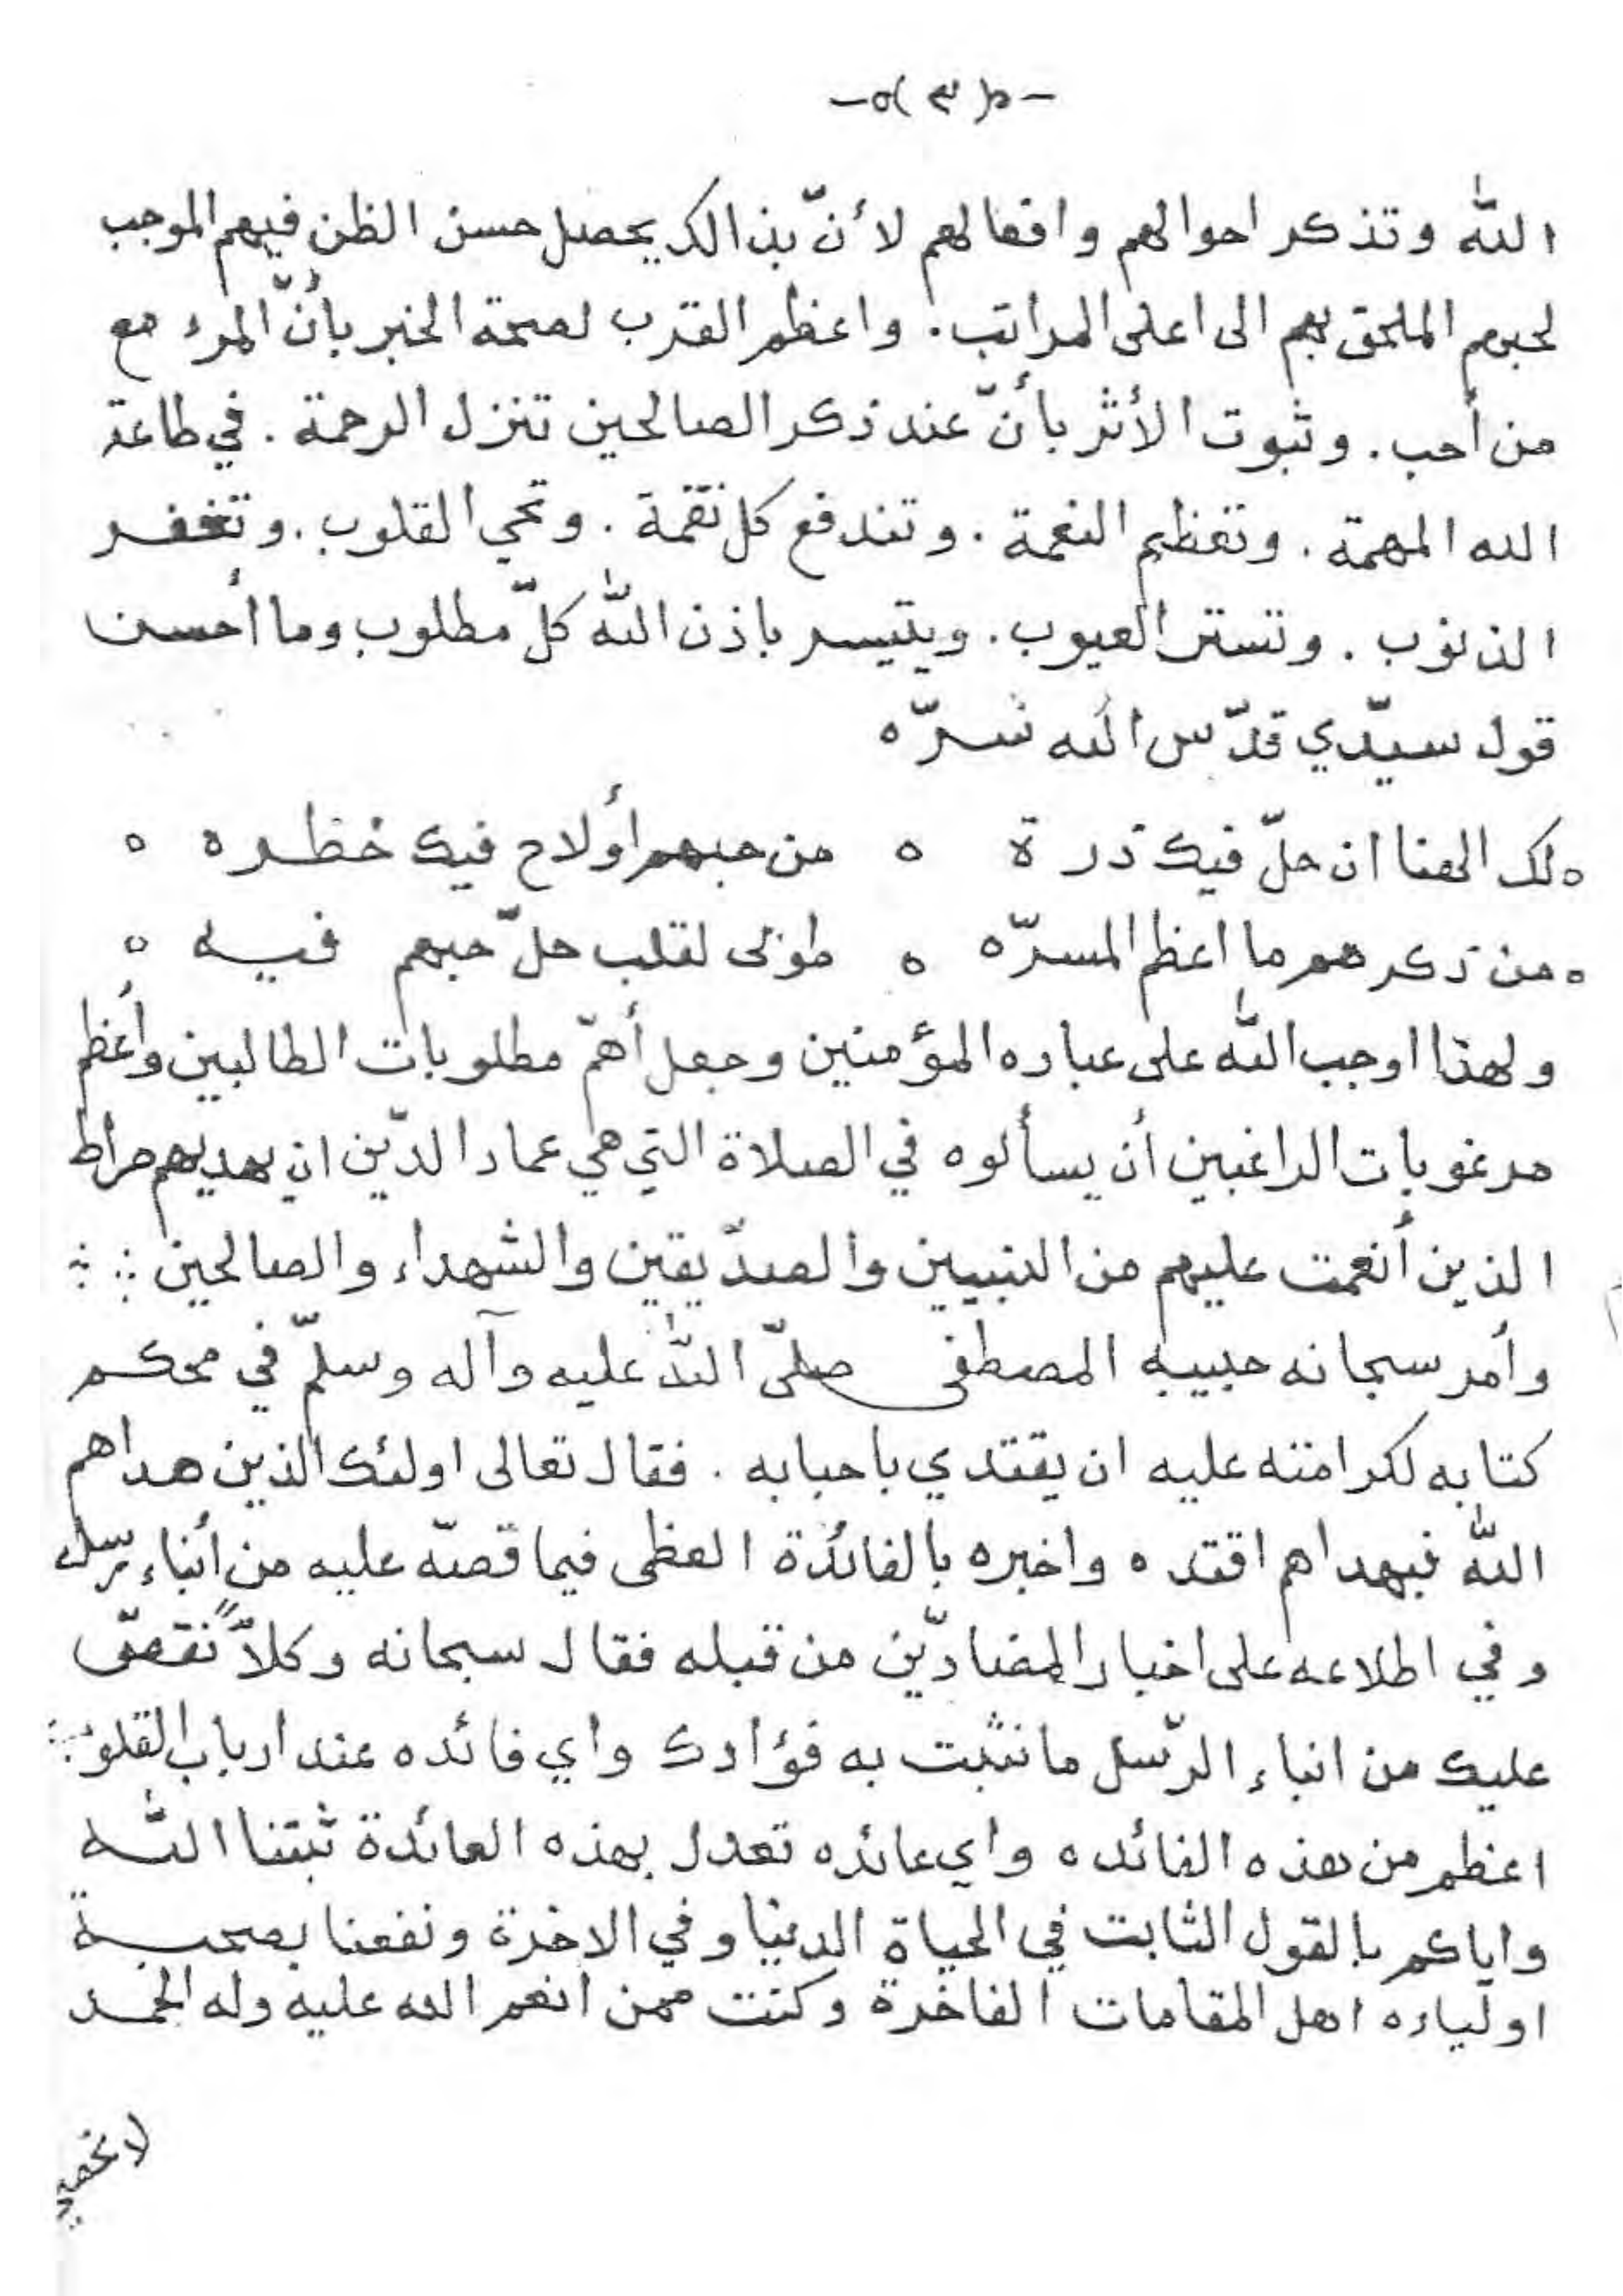 -٥( ٣ )٥-
الله وتذكر احوالهم وافعالهم لأنّ بذالك يحصل حسن الظن فيهم الموجب
لحبهم الملحق بهم الى اعلى المراتب . واعظم القرب لصحة الخبر بأنّ المرء مع
من أحب . وثبوت الأثر بأنّ عند ذكر الصالحين تنزل الرحمة . في طاعة
الله المهمة . وتعظم النعمة . وتندفع كل نقمة . وتحي القلوب . وتغفر
الذنوب . وتستر العيوب . ويتيسر باذن الله كلّ مطلوب وما أحسن
قول سيّدي قدّس الله سرّه
ه لك الهنا ان حلّ فيك ذرة ه من حبهم أولاح فيك خطره ه
ه من ذكرهم ما اعظم المسرّه ه طوبى لقلب حلّ حبهم فيه ه
ولهذا اوجب الله على عباده المؤمنين وجعل أهمّ مطلوبات الطالبين وأعظم
مرغوبات الراغبين أن يسألوه في الصلاة التي هي عماد الدّين ان يهديهم صراط
الذين أنعمت عليهم من النبيين والصدّيقين والشهداء والصالحين
وأمر سبحانه حبيبه المصطفى صلّى الله عليه وآله وسلّم في محكم
كتابه لكرامته عليه ان يقتدي باحبابه . فقال تعالى اولئك الذين هداهم
الله فبهداهم اقتده واخبره بالفائدة العظمى فيما قصّه عليه من أنباء رسله
وفي اطلاعه على اخبار المضادّين من قبله فقال سبحانه وكلاًّ نقصّ
عليك من انباء الرّسل ما نثبّت به فؤادك واي فائده عند ارباب القلوب
اعظم من هذه الفائده واي عائده تعدل بهذه العائدة ثبتنا الله
واياكم بالقول الثابت في الحياة الدنيا وفي الاخرة ونفعنا بصحبة
اولياءه اهل المقامات الفاخرة وكنت ممن انعم الله عليه وله الحمد